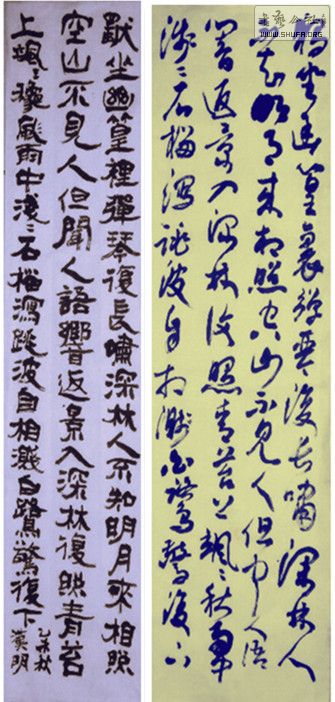 书艺公社
WWW.SHUFA.ORG
獨坐幽篁裏彈琴復長嘯深林人
不知明月來相照空山不見人但聞人語
響返景入深林復照青苔上颯〻秋雨中
淺〻石榴瀉跳波自相濺白鷺驚復下
獨坐幽篁裡彈琴復長嘯深林人不知明月來相照
空山不見人但聞人語響返景入深林復照青苔
上颯〻穐風雨中淺〻石榴瀉跳波自相濺白鷺驚復下
乙未秋
漢明